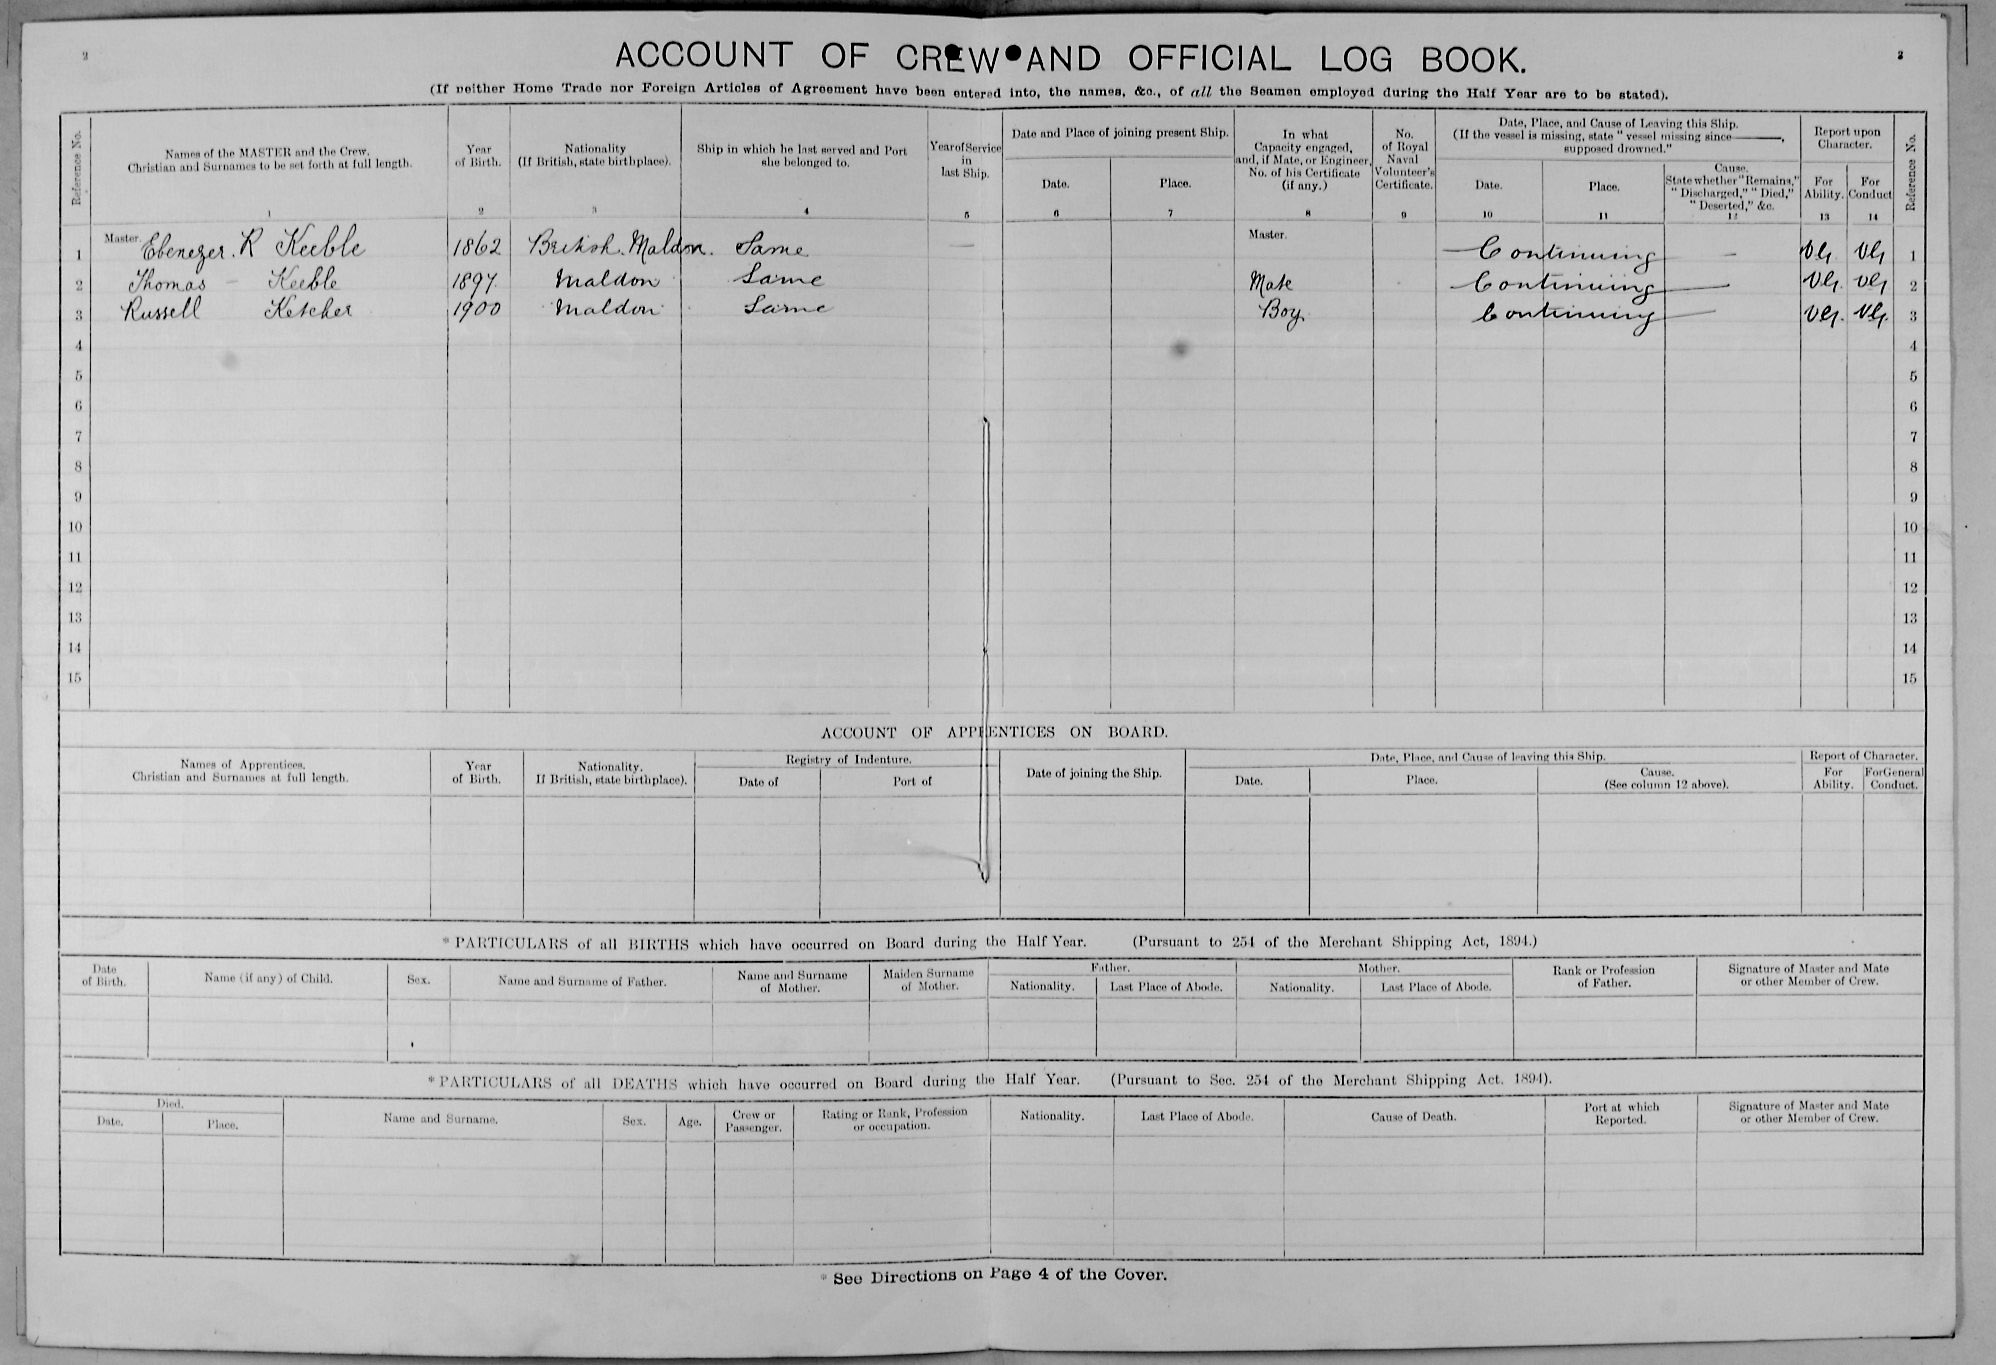 2
3
ACCOUNT OF CREW AND OFFICIAL LOG BOOK.
(If neither Home Trade nor Foreign Articles of Agreement have been entered into, the names, &c., of all the Seamen employed during the Half Year are to be stated).
Reference No.
Names of the MASTER and the Crew.
Christian and Surnames to be set forth at full length.
1
Year
of Birth.
2
Nationality
(If British, state birthplace).
3
Ship in which he last served and Port
she belonged to.
4
Year of Service
in
last Ship.
5
Date and Place of joining present Ship.
Date.
6
Place.
7
In what
Capacity engaged,
and, if Mate, or Engineer,
No. of his Certificate
(if any.)
8
No.
of Royal
Naval
Volunteer's
Certificate.
9
Date, Place, and Cause of Leaving this Ship.
(If the vessel is missing, state "vessel missing since ———,
supposed drowned."
Date.
10
Place.
11
Cause.
State whether "Remains,"
"Discharged," "Died,"
"Deserted," &c.
12
Report upon
Character.
For
Ability.
13
For
Conduct
14
Reference No.
1 Master. Ebenezer. R Keeble 1862 British. Maldon. Same — Master. Continuing — VG. VG 1
2 Thomas – Keeble 1897 Maldon Same Mate Continuing — VG. VG 2
3 Russell Ketcher 1900 Maldon Same Boy Continuing — VG. VG. 3
4 4
5 5
6 6
7 7
8 8
9 9
10 10
11 11
12 12
13 13
14 14
15 15
ACCOUNT OF APPRENTICES ON BOARD.
Names of Apprentices.
Christian and Surnames at full length.
Year
of Birth.
Nationality.
If British, state birthplace).
Registry of Indenture.
Date of
Port of
Date of joining the Ship.
Date, Place, and Cause of leaving this Ship.
Date.
Place.
Cause.
(See column 12 above).
Report of Character.
For
Ability.
For General
Conduct.
* PARTICULARS of all BIRTHS which have occurred on Board during the Half Year. (Pursuant to 254 of the Merchant Shipping Act, 1894.)
Date
of Birth.
Name (if any) of Child.
Sex.
Name and Surname of Father.
Name and Surname
of Mother.
Maiden Surname
of Mother.
Father.
Nationality.
Last Place of Abode.
Mother.
Nationality.
Last Place of Abode.
Rank or Profession
of Father.
Signature of Master and Mate
or other Member of Crew.
* PARTICULARS of all DEATHS which have occurred on Board during the Half Year. (Pursuant to Sec. 254 of the Merchant Shipping Act. 1894).
Died.
Date.
Place.
Name and Surname.
Sex.
Age.
Crew or
Passenger.
Rating or Rank, Profession
or occupation.
Nationality.
Last Place of Abode.
Cause of Death.
Port at which
Reported.
Signature of Master and Mate
or other Member of Crew.
* See Directions on Page 4 of the Cover.